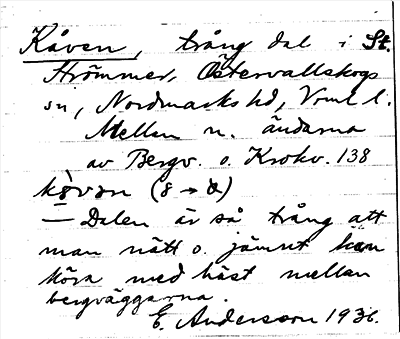 Kåven, trång dal i St.
Strömmer, Östervallskogs
sn, Nordmarks hd, Vrml l.
Mellan n. ändarna
av Bergv. o. Krokv. 138
— Dalen är så trång att
man nätt o. jämnt kan
köra med häst mellan
bergväggarna.
E. Andersson 1936.